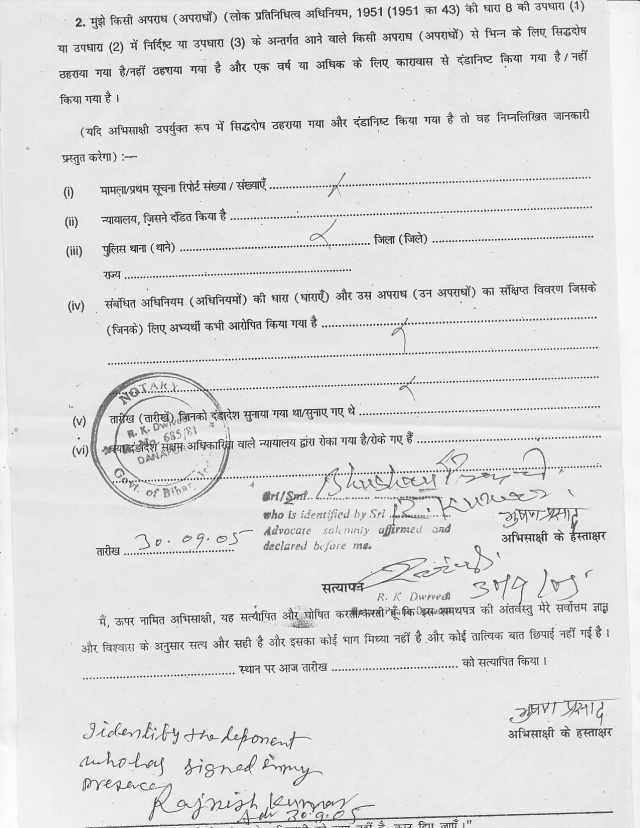 2. मुझे किसी अपराध (अपराधों) (लोक प्रतिनिधित्व अधिनियम, 1951 (1951 का 43) की धारा 8 की उपधारा (1)
या उपधारा (2) में निर्दिष्ट या उपधारा (3) के अन्तर्गत आने वाले किसी अपराध (अपराधों) से भिन्न के लिए सिद्धदोष
ठहराया गया है/नहीं ठहराया गया है और एक वर्ष या अधिक के लिए कारावास से दंडानिष्ट किया गया है/नहीं
किया गया है ।
(यदि अभिसाक्षी उपर्युक्त रूप में सिद्धदोष ठहराया गया और दंडानिष्ट किया गया है तो वह निम्नलिखित जानकारी
प्रस्तुत करेगा) :—
(i) मामला/प्रथम सूचना रिपोर्ट संख्या / संख्याएँ
(ii) न्यायालय, जिसने दंडित किया है
(iii) पुलिस थाना (थाने) जिला (जिले)
राज्य
(iv) संबंधित अधिनियम (अधिनियमों) की धारा (धाराएँ) और उस अपराध (उन अपराधों) का संक्षिप्त विवरण जिसके
(जिनके) लिए अभ्यर्थी कभी आरोपित किया गया है
(v) तारीख (तारीखें) जिनको दंडादेश सुनाया गया था/सुनाए गए थे
(vi) दंडादेश सक्षम अधिकारिता वाले न्यायालय द्वारा रोका गया है/रोके गए हैं
NOTARY
R. K. Dwivedi
R. No. 685/81
DANAPUR
Govt. of Bihar
Sri/Smt
who is identified by Sri R. Kumar
Advocate solemnly affirmed and
declared before me.
भूषण प्रसाद
अभिसाक्षी के हस्ताक्षर
तारीख 30.09.05
सत्यापन
30/9/05
R. K Dwivedi
मैं, ऊपर नामित अभिसाक्षी, यह सत्यापित और घोषित करता/करती हूँ कि इस शपथपत्र की अंतर्वस्तु मेरे सर्वोत्तम ज्ञान
और विश्वास के अनुसार सत्य और सही है और इसका कोई भाग मिथ्या नहीं है और कोई तात्विक बात छिपाई नहीं गई है ।
स्थान पर आज तारीख को सत्यापित किया ।
भूषण प्रसाद
अभिसाक्षी के हस्ताक्षर
I identify the deponent
who has signed in my
presence
Rajnish Kumar
Adv 30.9.05